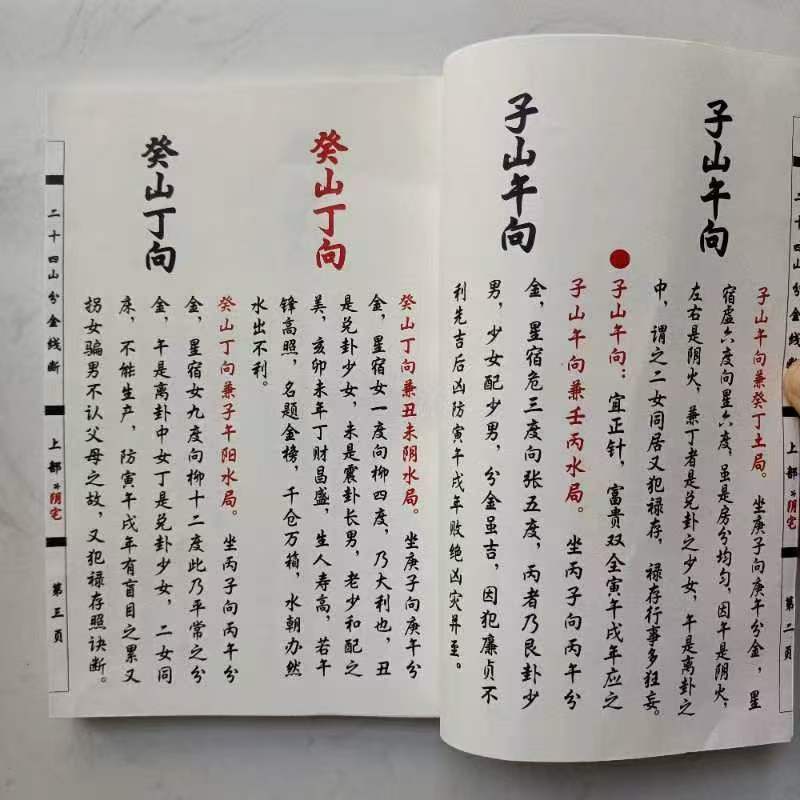 二十四山分金线断 上部 阴宅 第二页
子山午向
子山午向兼癸丁土局。坐庚子向庚午分金，星
宿虚六度向星六度，虽是房分均匀，因午是阴火，
左右是阴火，兼丁者是兑卦之少女，午是离卦之
中，谓之二女同居又犯禄存，禄存行事多狂妄。
子山午向
子山午向：宜正针，富贵双全寅午戌年应之
子山午向兼壬丙水局。坐丙子向丙午分
金，星宿危三度向张五度，丙者乃艮卦少
男，少女配少男，分金虽吉，因犯廉贞不
利先吉后凶防寅午戌年败绝凶灾昇至。
癸山丁向
癸山丁向兼丑未阴水局。坐庚子向庚午分
金，星宿女一度向柳四度，乃大利也，丑
是兑卦少女，未是震卦长男，老少和配之
美，亥卯未年丁财昌盛，生人寿高，若午
锋高照，名题金榜，千仓万箱，水朝办然
水出不利。
癸山丁向
癸山丁向兼子午阳水局。坐丙子向丙午分
金，星宿女九度向柳十二度此乃平常之分
金，午是离卦中女丁是兑卦少女，二女同
床，不能生产，防寅午戌年有盲目之累又
拐女骗男不认父母之故，又犯禄存照诀断。
二十四山分金线断 上部 阴宅 第三页